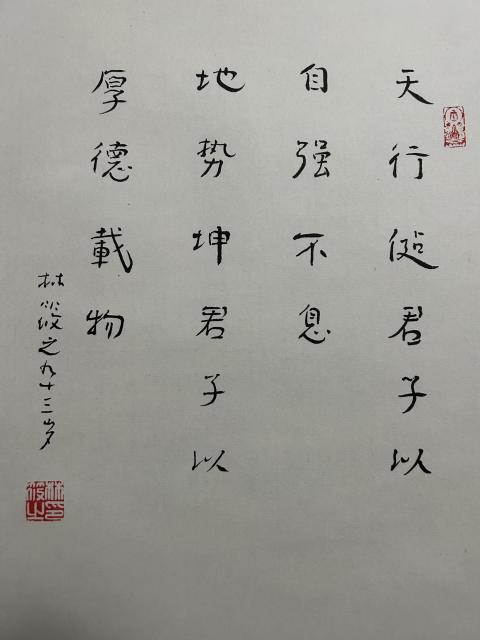 天行健君子以
自强不息
地势坤君子以
厚德載物
林筱之九十三岁
林印筱之